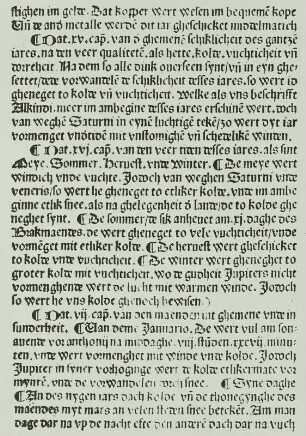 stighen im gelde. Dat kopper wert wesen im bequemē kope
Vñ de andȝ metalle werdē dit iar gheschicket middelmatich
¶ Dat .xv. cap̄. van d̕ ghemenē schiklicheit des gantzē
iares, na den veer qualitetē. als hette, kolde, vuchticheit vñ
dorreit. Na dem so alle dink
settet/ vnde vorwandelē de schiklicheit desses iares. so wert id
gheneget to kolde vñ vuchticheit. Welke als vns beschrifft
Alkindi. meer im ambegine desses iares erschinē wert. doch
van weghē Saturni in eynē luchtigē tekē/ so wert dyt iar
vormenget vnde mit vnstomighē vñ schedelikē winden.
¶ Dat .xvj. cap̄. van den veer tiden desses iares. als sint
Meye. Sommer. Heruest. vnde Winter. ¶ De meye wert
windich vnde vuchte. Jodoch van weghen Saturni vnde
veneris/ so wert he gheneget to etliker kolde. vnde im ambe
ginne etlik snee. als na ghelegenheit d̕ lande/ de to kolde ghe
neghet synt. ¶ De sommer/ de sik anheuet am .xj. daghe des
Brakmaendes. de wert gheneget to vele vuchticheit/ vnde
vormēget mit etliker kolde. ¶ De heruest wert gheschicket
to kolde vnde vuchticheit. ¶ De winter wert gheneghet to
groter kolde mit vuchticheit. wo de gudheit Jupiters nicht
vormenghende wert de lucht mit warmen winde. Jodoch
so wert he vns kolde ghenoch bewisen.
¶ Dat .vij. cap̄. van den maenden int ghemene vnde in
sunderheit. ¶ Van deme Januario. De wert vul am son-
auende vor anthonij na middaghe, vnij. stūden. xxvij. minu-
ten. vnde wert vormenghet mit winde vnde kolde. Jodoch
Jupiter in syner vorhoginge wert de kolde etlikermate vor
mynrē. vnde de vorwandelen in snee. ¶ Syne daghe
¶ An des nygen iars dach kolde vñ de thonegynghe des
maēdes myt mars an velen steden snee betekēt. Am man
dage dar na vp de nacht efte den anderē dach dar na vuch